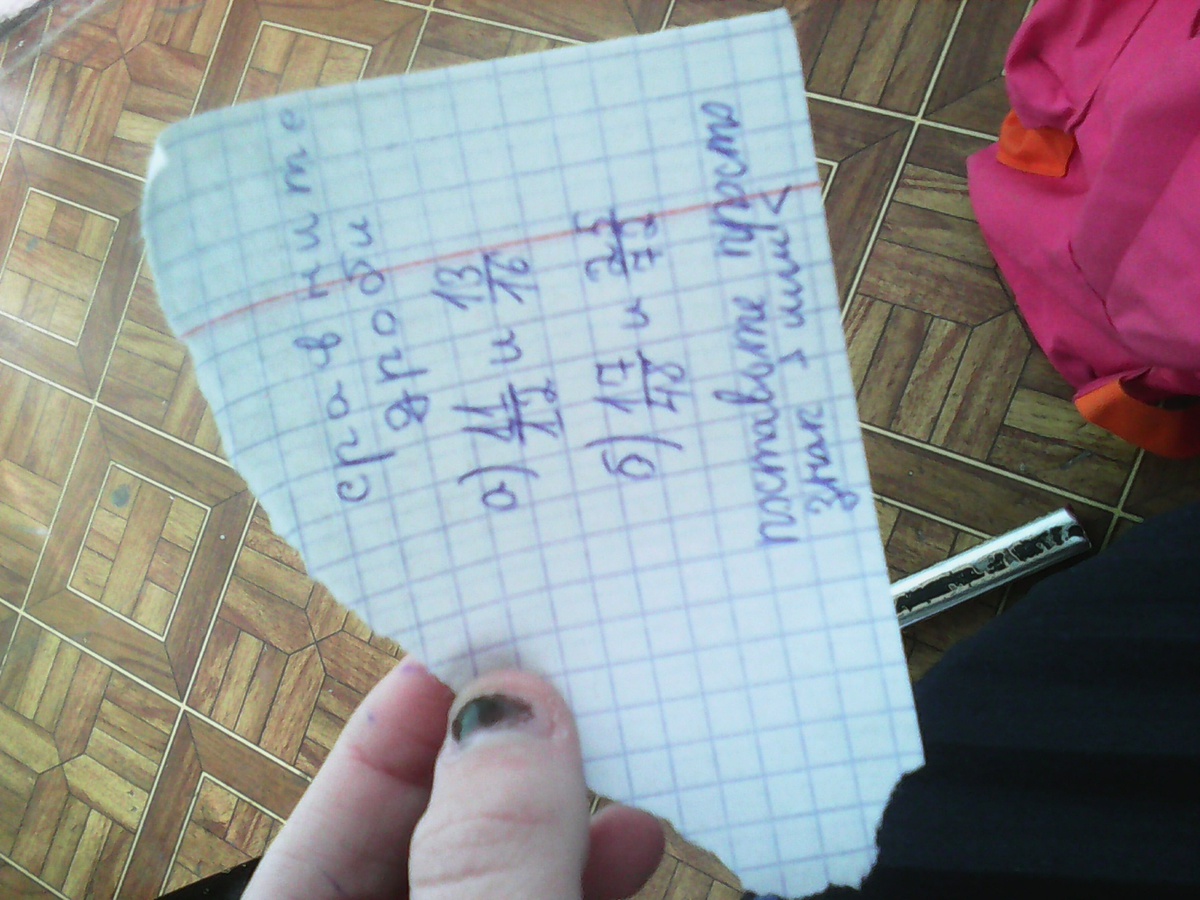 сравните
дроби
а) 11/12 и 13/16
б) 17/48 и 25/72
поставьте просто
знак > или <